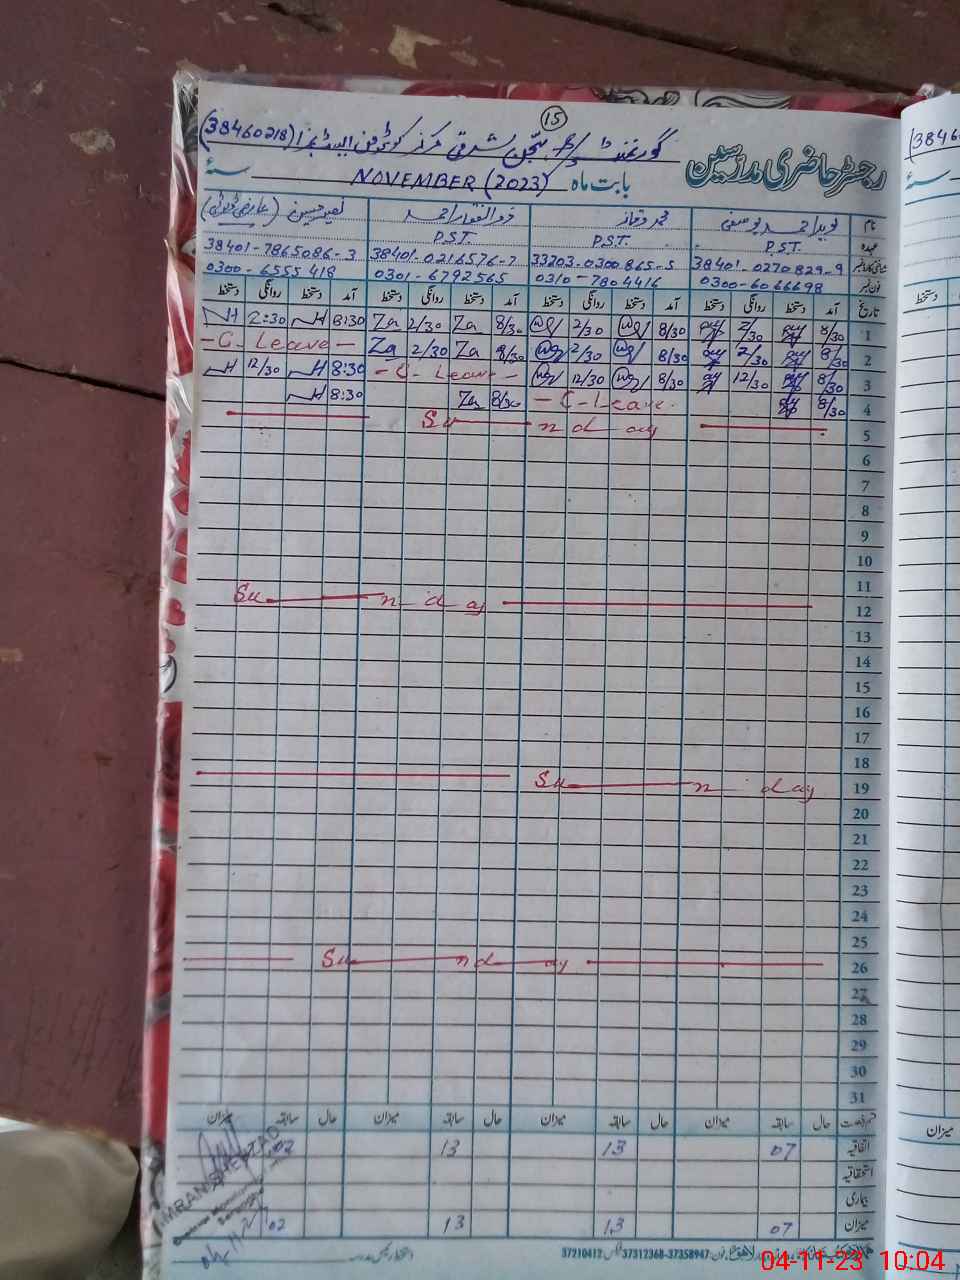 15
گورنمنٹ (38460218)
رجسٹر حاضری مدرسین
بابت ماہ NOVEMBER (2023) سنہ
نام نوید احمد یوسفی محمد وقاز ذوالفقار احمد نصیر حسین (عارضی ڈیوٹی)
عہدہ P.S.T. P.S.T. P.S.T.
شناختی کارڈ نمبر 38401-0270829-9 33203-0300865-5 38401-0216576-7 38401-7865086-3
فون نمبر 0300-6066698 0310-7804416 0301-6792565 0300-6555418
تاریخ آمد دستخط روانگی دستخط آمد دستخط روانگی دستخط آمد دستخط روانگی دستخط آمد دستخط روانگی دستخط
1 8/30 2/30 8/30 2/30 8/30 Za 2/30 Za 8:30 NH 2:30 NH
2 8/30 2/30 8/30 2/30 8/30 Za 2/30 Za - C. Leave -
3 8/30 12/30 8/30 12/30 - C. Leave - 8:30 NH 12/30 NH
4 8/30 - C. Leave - 8/30 Za 8:30 NH
5 Sunday
6
7
8
9
10
11
12 Sunday
13
14
15
16
17
18
19 Sunday
20
21
22
23
24
25
26 Sunday
27
28
29
30
31
قسم رخصت حال سابقہ میزان حال سابقہ میزان حال سابقہ میزان حال سابقہ میزان
اتفاقیہ 07 13 13 02
استحقاقیہ
بیماری
میزان 07 13 13 02
IMRAN SHEHZAD
37210412 فیکس 37312368-37358947
04-11-23 10:04
(3846
سنہ
دستخط
میزان